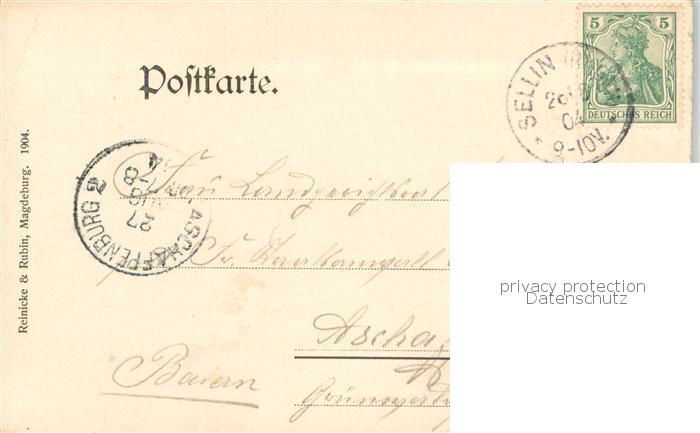 Postkarte.
5 5
DEUTSCHES REICH
* SELLIN
04
9-10V. *
Reinicke & Rubin, Magdeburg. 1904.
ASCHAFFENBURG 2
27
Frau
Fr. Staatsanwalt
Ascha
Baiern
privacy protection
Datenschutz